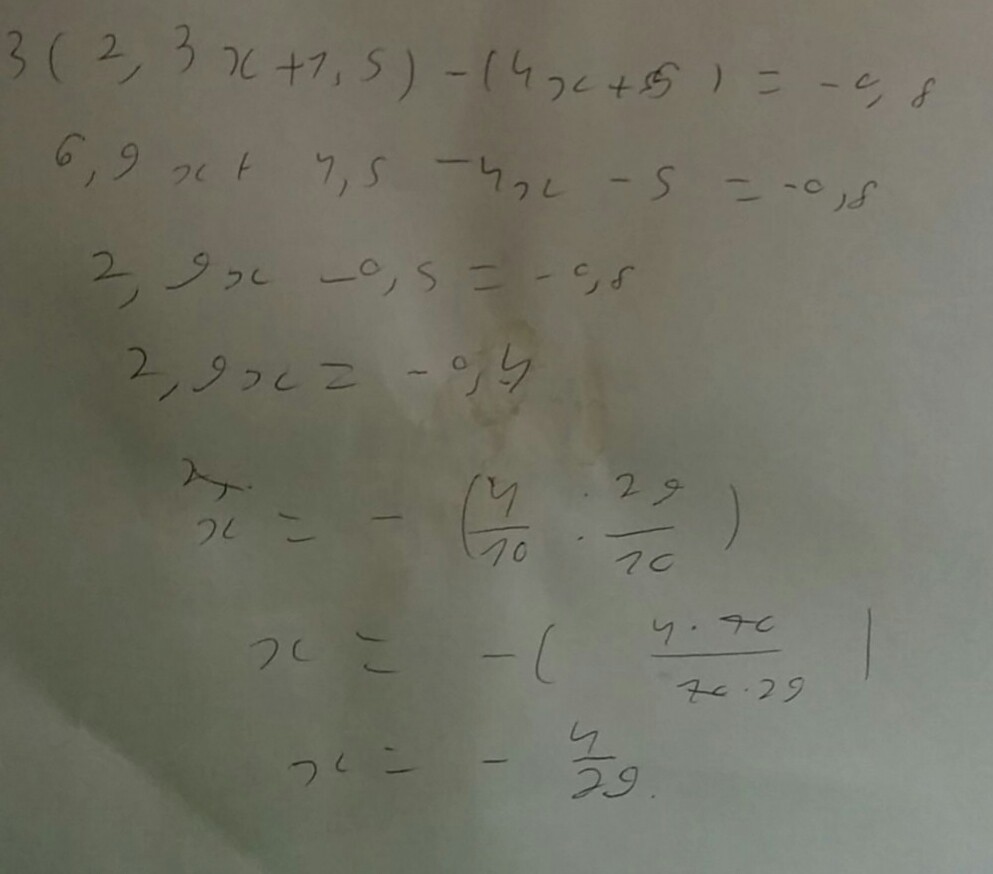 3(2,3x+1,5)-(4x+5)=-0,8
6,9x+4,5-4x-5=-0,8
2,9x-0,5=-0,8
2,9x=-0,4
x=-(4/10:29/10)
x=-(4·10/10·29)
x=-4/29.